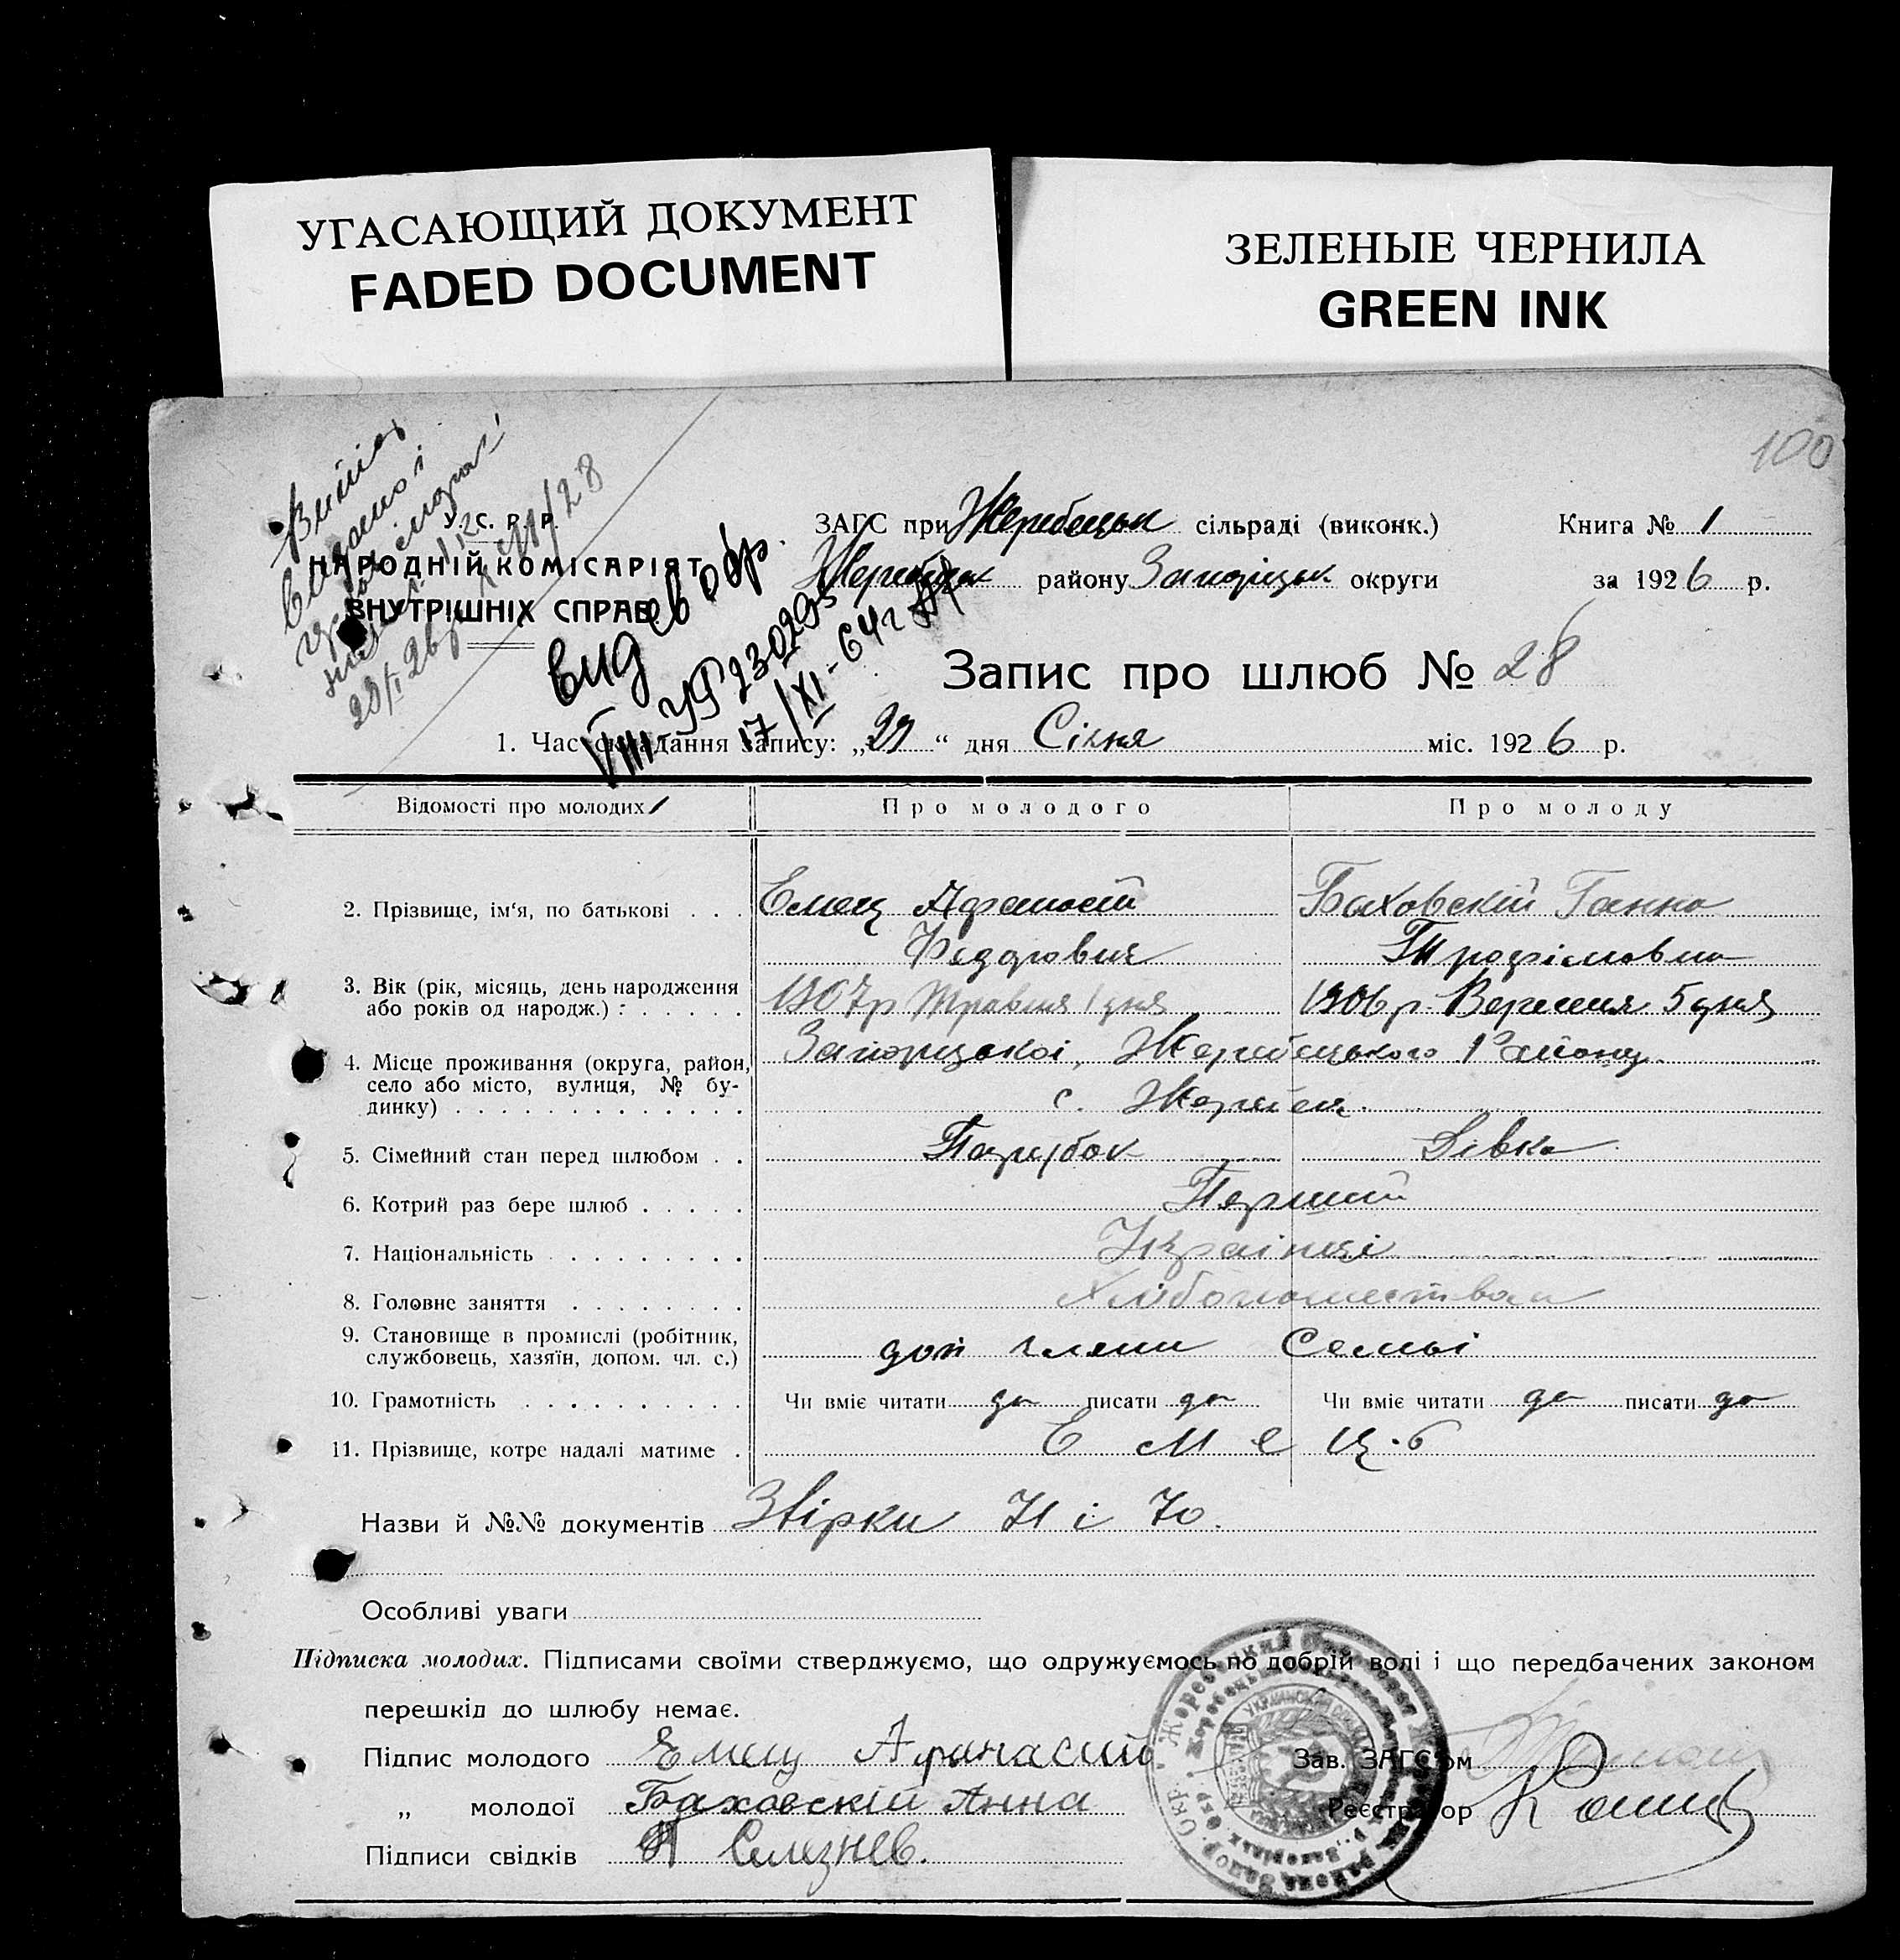 УГАСАЮЩИЙ ДОКУМЕНТ
FADED DOCUMENT
ЗЕЛЕНЫЕ ЧЕРНИЛА
GREEN INK
100
У. С. Р. Р.
НАРОДНІЙ КОМІСАРІЯТ
ВНУТРІШНІХ СПРАВ
ЗАГС при Жеребецьк сільраді (виконк.) Книга № 1
Жеребецьк району Запоріцьк округи за 1926 р.
вид св. обр.
VIII УР 230295
17/XI-64 г
Запис про шлюб № 28
1. Час складання запису: „29“ дня Січня міс. 1926 р.
Відомості про молодих Про молодого Про молоду
2. Прізвище, ім‘я, по батькові . . . Емец Афанасій Баховскій Ганна
Феддрович Трофімовна
3. Вік (рік, місяць, день народження 1907р Травня 1 дня 1906 р. Вересня 5 дня
або років од народж.) : . . . . .
4. Місце проживання (округа, район, Запоріцької, Жеребецького Району
село або місто, вулиця, № бу-
динку) . . . . . . . . . . . . . с. Жеребец.
5. Сімейний стан перед шлюбом . . Парубок Дівка
6. Котрий раз бере шлюб . . . . . Перший
7. Національність . . . . . . . . Українці
8. Головне заняття . . . . . . . .
9. Становище в промислі (робітник, доп члени Семьі
службовець, хазяїн, допом. чл. с.)
10. Грамотність . . . . . . . . . . Чи вміє читати да писати да Чи вміє читати да писати да
11. Прізвище, котре надалі матиме . Е м е ц.ь
Назви й №№ документів Звірки 71 і 70.
Особливі уваги
Підписка молодих. Підписами своїми стверджуємо, що одружуємось по добрій волі і що передбачених законом
перешкід до шлюбу немає.
Підпис молодого Емец Афанасий Зав. ЗАГС‘ом
„ молодої Баховскій Анна Реєстратор
Підписи свідків Селезнев.